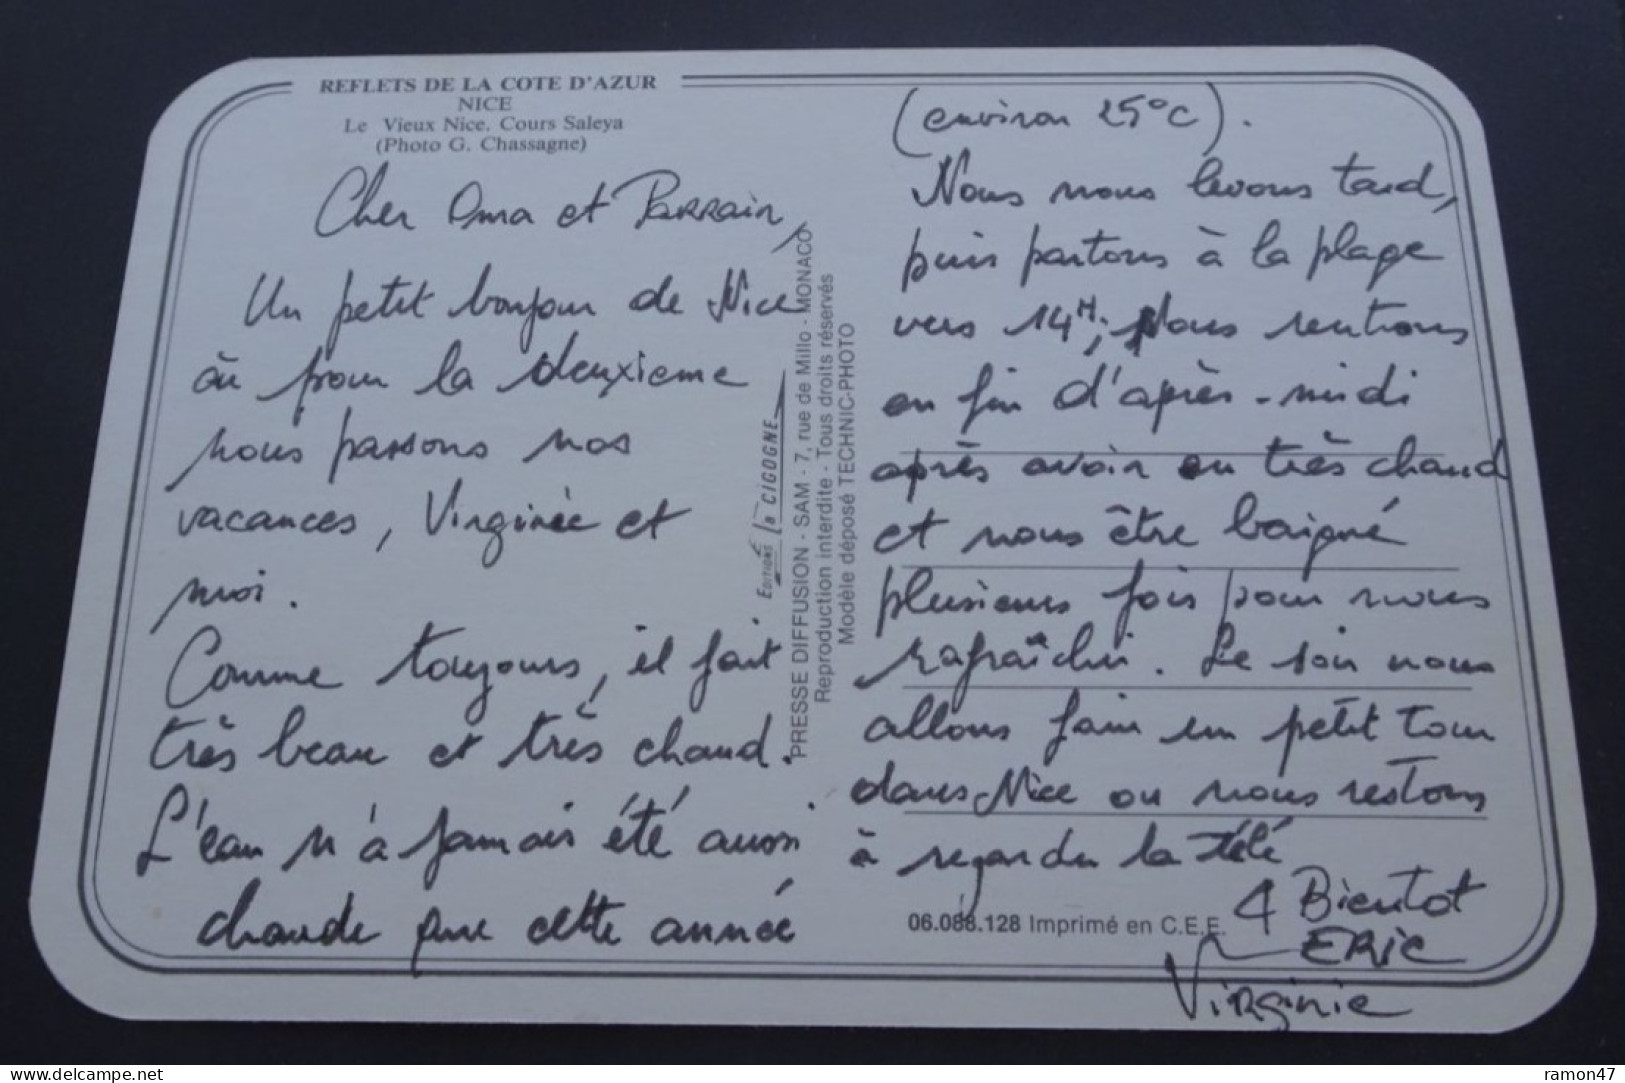 REFLETS DE LA COTE D'AZUR
NICE
Le Vieux Nice. Cours Saleya
(Photo G. Chassagne)
Cher Oma et Parrain,
Un petit bonjour de Nice
où pour la deuxieme
nous passons nos
vacances, Virginie et
moi.
Comme toujours, il fait
très beau et très chaud.
L'eau n'a jamais été aussi
chaude que cette année
EDITIONS la CIGOGNE
PRESSE DIFFUSION - SAM - 7, rue de Millo - MONACO
Reproduction interdite - Tous droits réservés
Modèle déposé TECHNIC-PHOTO
(environ 25°C).
Nous nous levons tard,
puis partons à la plage
vers 14H; Nous rentrons
en fin d'après-midi
après avoir eu très chaud
et nous être baigné
plusieurs fois pour nous
rafraîchir. Le soir nous
allons faire un petit tour
dans Nice ou nous restons
à regarder la télé
A Bientot
06.088.128 Imprimé en C.E.E.
ERIC
Virginie
www.delcampe.net
ramon47